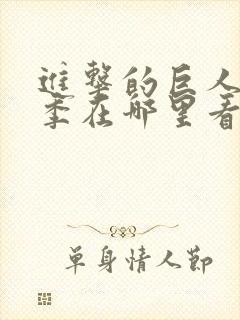 進擊的巨人
季在哪里看
單身情人節